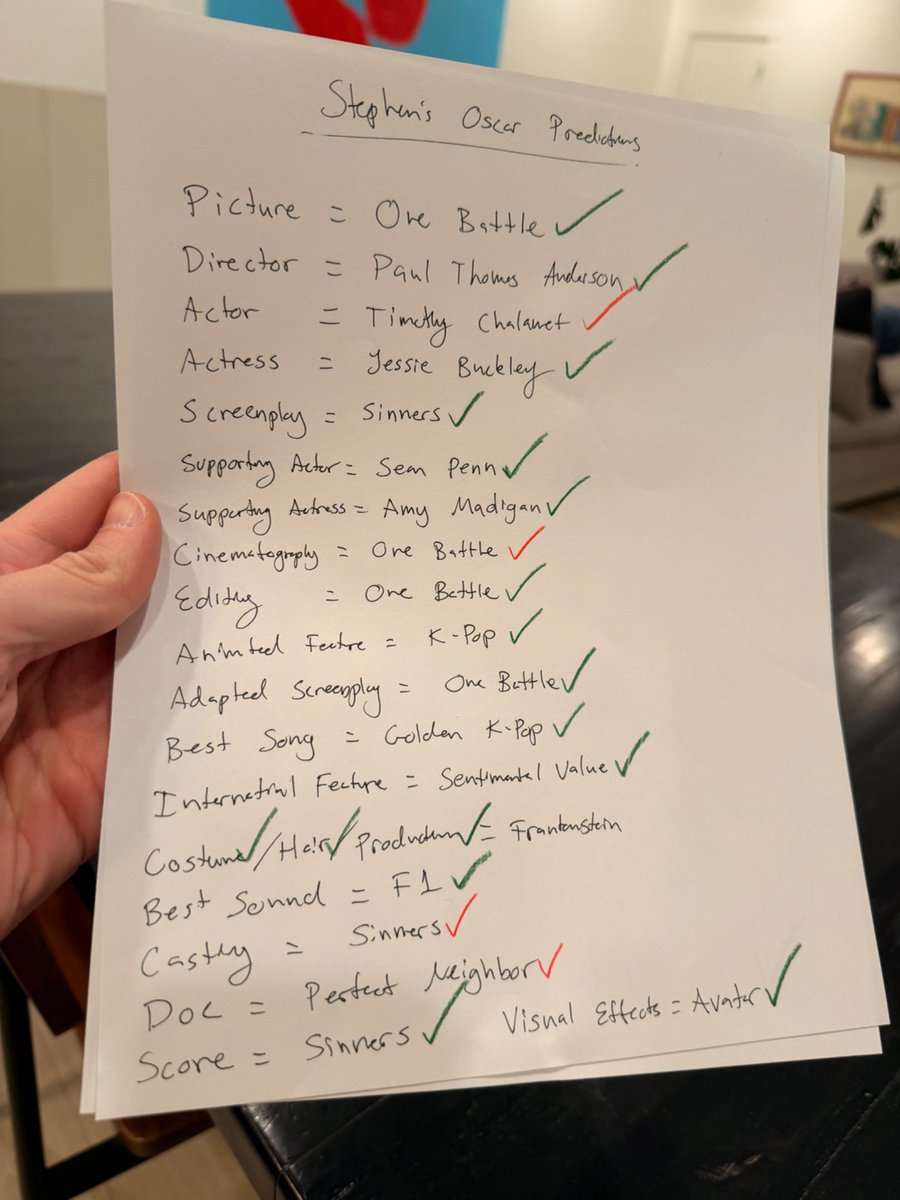 Stephen's Oscar Predictions
Picture = One Battle ✓
Director = Paul Thomas Anderson ✓
Actor = Timothy Chalamet ✓
Actress = Jessie Buckley ✓
Screenplay = Sinners ✓
Supporting Actor = Sean Penn ✓
Supporting Actress = Amy Madigan ✓
Cinematography = One Battle ✓
Editing = One Battle ✓
Animated Feature = K-Pop ✓
Adapted Screenplay = One Battle ✓
Best Song = Golden K-Pop ✓
International Feature = Sentimental Value ✓
Costume ✓ / Hair ✓ Production ✓ = Frankenstein
Best Sound = F1 ✓
Casting = Sinners ✓
Doc = Perfect Neighbor ✓
Score = Sinners ✓ Visual Effects = Avatar ✓